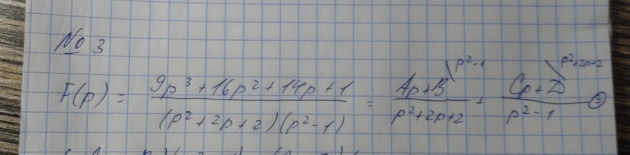 № 3
F(p) = (9p³ + 16p² + 14p + 1) / ((p² + 2p + 2)(p² - 1)) = (Ap + B) \ p² - 1 / (p² + 2p + 2) + (Cp + D) \ p² + 2p + 2 / (p² - 1) =